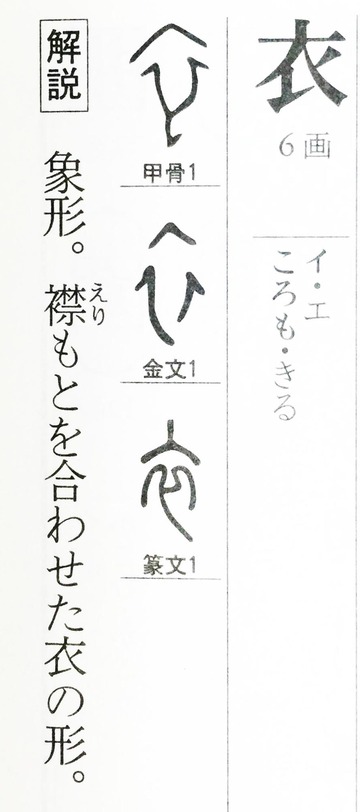 衣
6画
イ・エ
ころも・きる
甲骨1
金文1
篆文1
解説
象形。襟えりもとを合わせた衣の形。